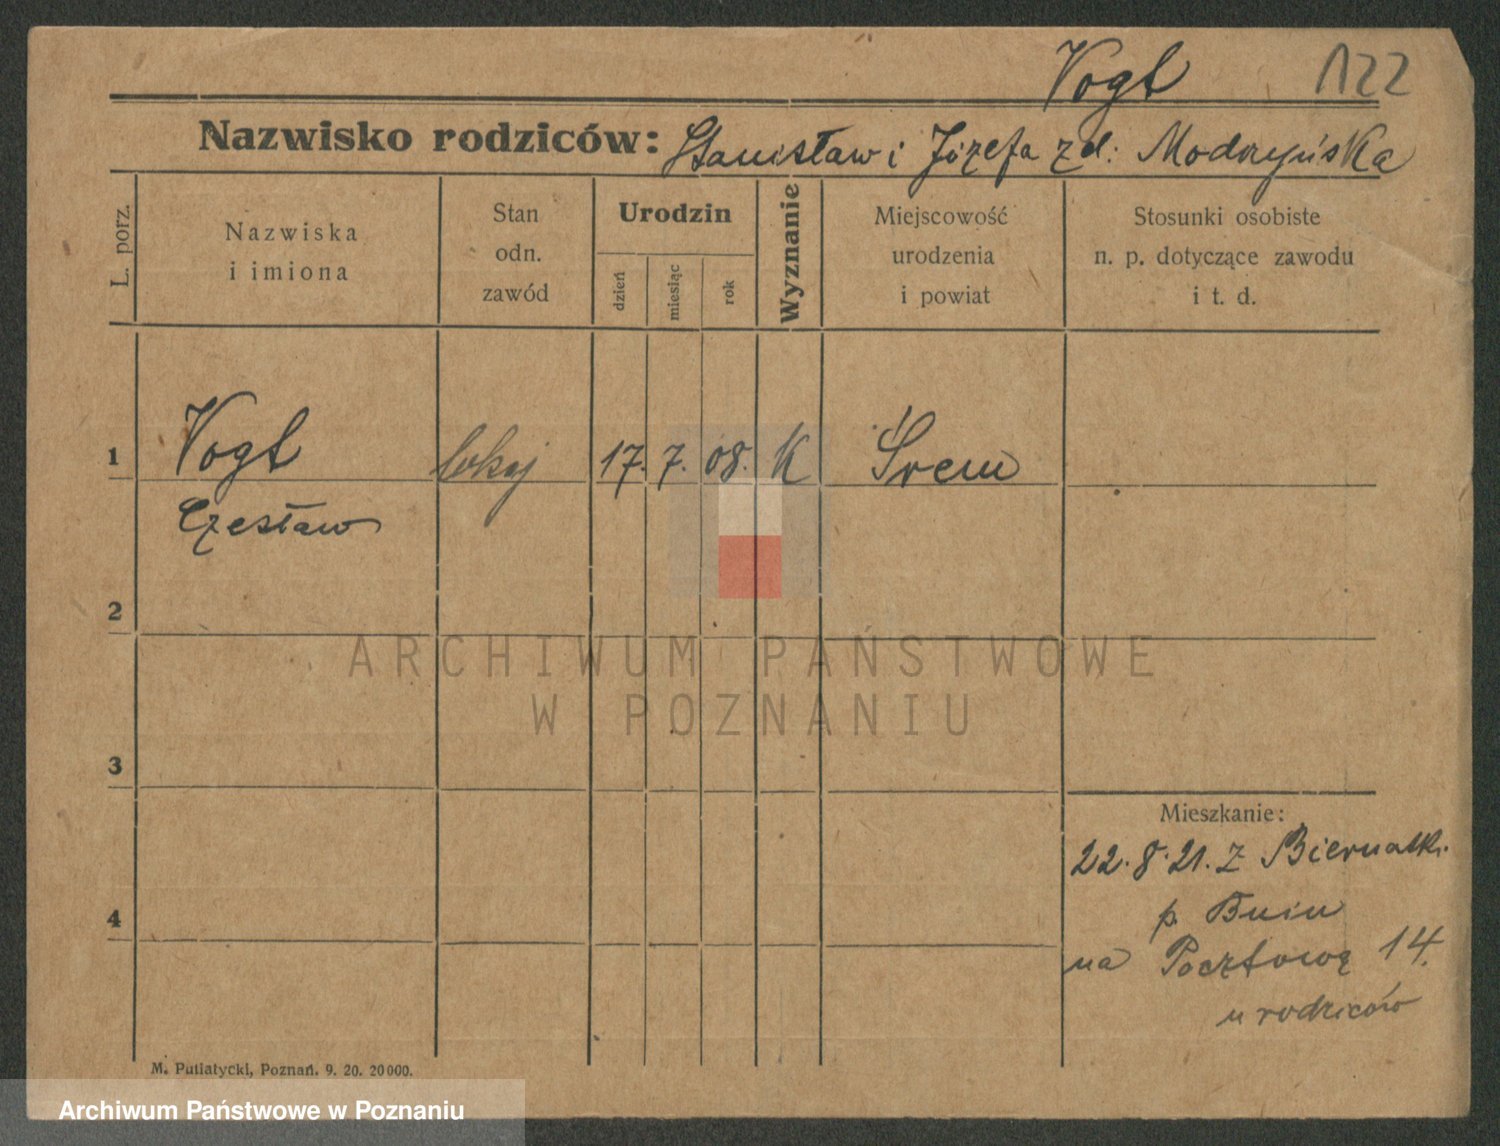 Vogt 122
Nazwisko rodziców: Stanisław i Józefa zd: Modrzyńska
L. porz.
Nazwiska
i imiona
Stan
odn.
zawód
Urodzin
dzień
miesiąc
rok
Wyznanie
Miejscowość
urodzenia
i powiat
Stosunki osobiste
n. p. dotyczące zawodu
i t. d.
1 Vogt lokaj 17. 7. 08. K Śrem
Czesław
2
3
4
Mieszkanie:
22.8.21. z Biernatk.
p. Bnin
na Pocztową 14.
u rodziców
M. Putiatycki, Poznań. 9. 20. 20000.
ARCHIWUM PAŃSTWOWE
W POZNANIU
Archiwum Państwowe w Poznaniu